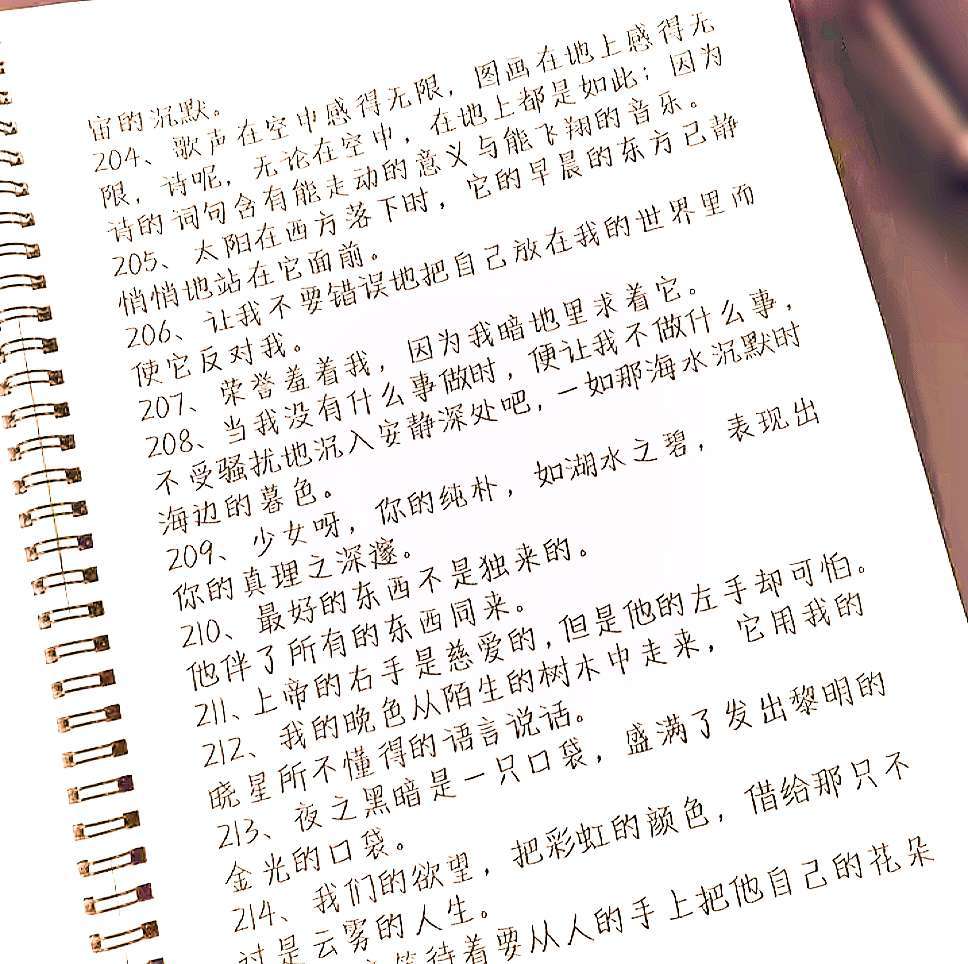 宙的沉默。
204、歌声在空中感得无限，图画在地上感得无
限，诗呢，无论在空中，在地上都是如此；因为
诗的词句含有能走动的意义与能飞翔的音乐。
205、太阳在西方落下时，它的早晨的东方已静
悄悄地站在它面前。
206、让我不要错误地把自己放在我的世界里而
使它反对我。
207、荣誉羞着我，因为我暗地里求着它。
208、当我没有什么事做时，便让我不做什么事，
不受骚扰地沉入安静深处吧，一如那海水沉默时
海边的暮色。
209、少女呀，你的纯朴，如湖水之碧，表现出
你的真理之深邃。
210、最好的东西不是独来的。
他伴了所有的东西同来。
211、上帝的右手是慈爱的，但是他的左手却可怕。
212、我的晚色从陌生的树木中走来，它用我的
晓星所不懂得的语言说话。
213、夜之黑暗是一只口袋，盛满了发出黎明的
金光的口袋。
214、我们的欲望，把彩虹的颜色，借给那只不
过是云雾的人生。
等待着要从人的手上把他自己的花朵